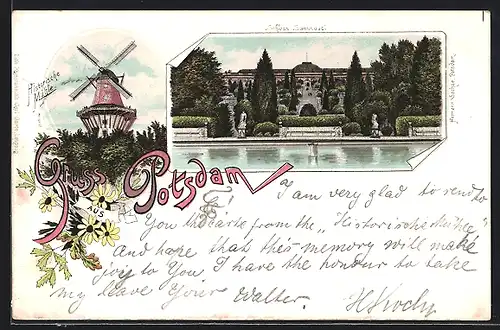 Schloss Sanssouci.
Historische
Mühle
Gruss
aus
Potsdam
I am very glad to send to
You the carte from the „Historische Mühle"
And hope that this memory will make
joy to You I have the honour to take
my leave Your Walter.